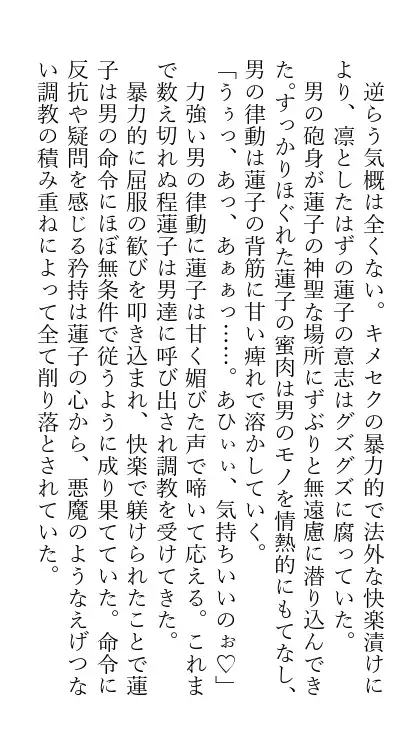 逆らう気概は全くない。キメセクの暴力的で法外な快楽漬けに
より、凛としたはずの蓮子の意志はグズグズに腐っていた。
男の砲身が蓮子の神聖な場所にずぶりと無遠慮に潜り込んでき
た。すっかりほぐれた蓮子の蜜肉は男のモノを情熱的にもてなし、
男の律動は蓮子の背筋に甘い痺れで溶かしていく。
「うぅっ、あっ、あぁぁっ……。あひぃぃ、気持ちいいのぉ♡」
力強い男の律動に蓮子は甘く媚びた声で啼いて応える。これま
で数え切れぬ程蓮子は男達に呼び出され調教を受けてきた。
暴力的に屈服の歓びを叩き込まれ、快楽で躾けられたことで蓮
子は男の命令にほぼ無条件で従うように成り果てていた。命令に
反抗や疑問を感じる矜持は蓮子の心から、悪魔のようなえげつな
い調教の積み重ねによって全て削り落とされていた。